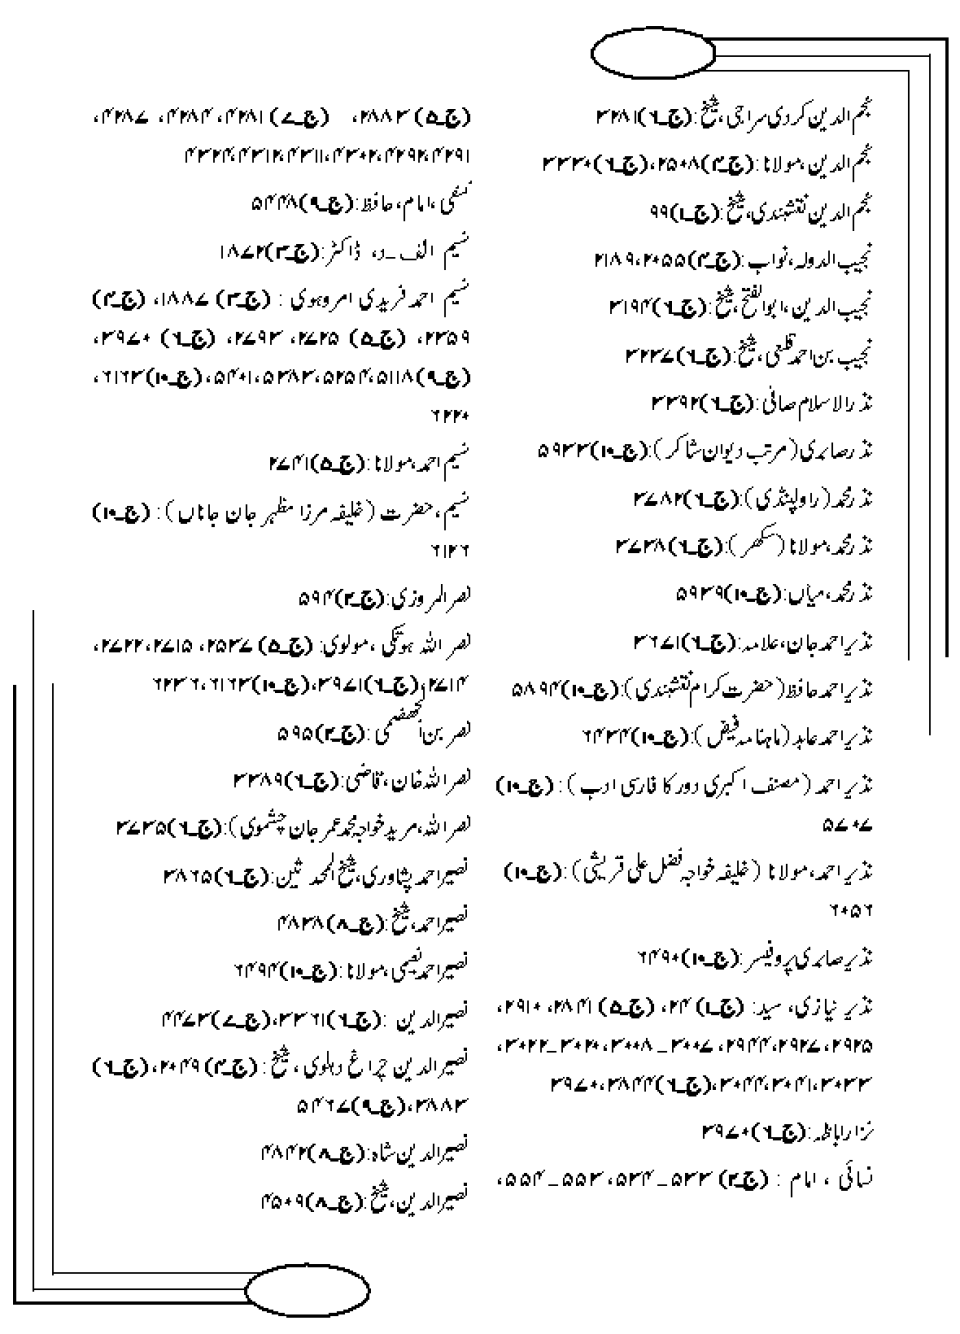 نجم الدین کردی سراجی، شیخ:(ج۔۶)۳۲۸۱
نجم الدین، مولانا:(ج۔۴)۲۵۰۸،(ج۔۶)۳۳۳۰
نجم الدین نقشبندی، شیخ:(ج۔۱)۹۹
نجیب الدولہ، نواب:(ج۔۴)۲۰۵۵،۲۱۸۹
نجیب الدین، ابوالفتح، شیخ:(ج۔۶)۳۱۹۴
نجیب بن احمد قلعی، شیخ:(ج۔۶)۳۲۳۷
نذرالاسلام صافی:(ج۔۶)۳۳۹۲
نذر صابری(مرتب دیوان شاکر):(ج۔۱۰)۵۹۳۳
نذر محمد(راولپنڈی):(ج۔۶)۳۷۸۲
نذر محمد، مولانا(سکھر):(ج۔۶)۳۷۳۸
نذر محمد، میاں:(ج۔۱۰)۵۹۳۹
نذیر احمد جان، علامہ:(ج۔۶)۳۶۷۱
نذیر احمد حافظ(حضرت کرام نقشبندی):(ج۔۱۰)۵۸۹۴
نذیر احمد عابد(ماہنامہ فیض):(ج۔۱۰)۶۴۳۴
نذیر احمد(مصنف اکبری دور کا فارسی ادب):(ج۔۱۰)
۵۷۰۷
نذیر احمد، مولانا(خلیفہ خواجہ فضل علی قریشی):(ج۔۱۰)
۶۰۵۶
نذیر صابری پروفیسر:(ج۔۱۰)۶۴۹۰
نذیر نیازی، سید:(ج۔۱)۲۴، (ج۔۵)۲۸۴۱، ۲۹۱۰،
۲۹۲۵، ۲۹۲۷، ۲۹۴۴، ۳۰۰۷_۳۰۰۸، ۳۰۲۰_۳۰۲۲،
۳۰۳۳،۳۰۴۱،۳۰۴۴،(ج۔۶)۳۸۴۴،۳۹۷۰
نزار اباظہ:(ج۔۶)۳۹۷۰
نسائی، امام:(ج۔۲)۵۳۳_۵۳۴، ۵۵۳_۵۵۴،
(ج۔۵)۲۸۸۳، (ج۔۷)۴۲۸۱، ۴۲۸۴، ۴۲۸۷،
۴۲۹۱،۴۲۹۲،۴۳۰۲،۴۳۱۱،۴۳۱۲،۴۳۲۴
نسفی، امام، حافظ:(ج۔۹)۵۴۴۸
نسیم الف_د، ڈاکٹر:(ج۔۳)۱۸۷۲
نسیم احمد فریدی امروہوی:(ج۔۳)۱۸۸۷، (ج۔۴)
۲۳۵۹، (ج۔۵)۲۷۲۵، ۲۷۹۳، (ج۔۶)۳۹۷۰،
(ج۔۹)۵۱۱۸،۵۲۵۴،۵۳۸۳،۵۴۰۱،(ج۔۱۰)۶۱۶۳،
۶۲۲۰
نسیم احمد، مولانا:(ج۔۵)۲۷۴۱
نسیم، حضرت(خلیفہ مرزا مظہر جان جاناں):(ج۔۱۰)
۶۱۲۶
نصر المروزی:(ج۔۲)۵۹۴
نصر اللہ ہوتکی، مولوی:(ج۔۵)۲۵۳۷، ۲۷۱۵، ۲۷۲۲،
۲۷۱۴،(ج۔۶)۳۹۷۱،(ج۔۱۰)۶۱۶۳،۶۲۳۶
نصر بن الجہضمی:(ج۔۲)۵۹۵
نصر اللہ خان، قاضی:(ج۔۶)۳۳۸۹
نصر اللہ، مرید خواجہ محمد عمر جان چشموی):(ج۔۶)۳۷۳۵
نصیر احمد پشاوری، شیخ المحدثین:(ج۔۶)۳۸۶۵
نصیر احمد، شیخ:(ج۔۸)۴۸۳۸
نصیر احمد نعیمی، مولانا:(ج۔۱۰)۶۴۹۴
نصیر الدین:(ج۔۶)۳۳۶۱،(ج۔۷)۴۴۷۳
نصیر الدین چراغ دہلوی، شیخ:(ج۔۴)۲۰۴۹، (ج۔۶)
۳۸۸۳،(ج۔۹)۵۴۶۷
نصیر الدین شاہ:(ج۔۸)۴۸۴۲
نصیر الدین، شیخ:(ج۔۸)۴۵۰۹